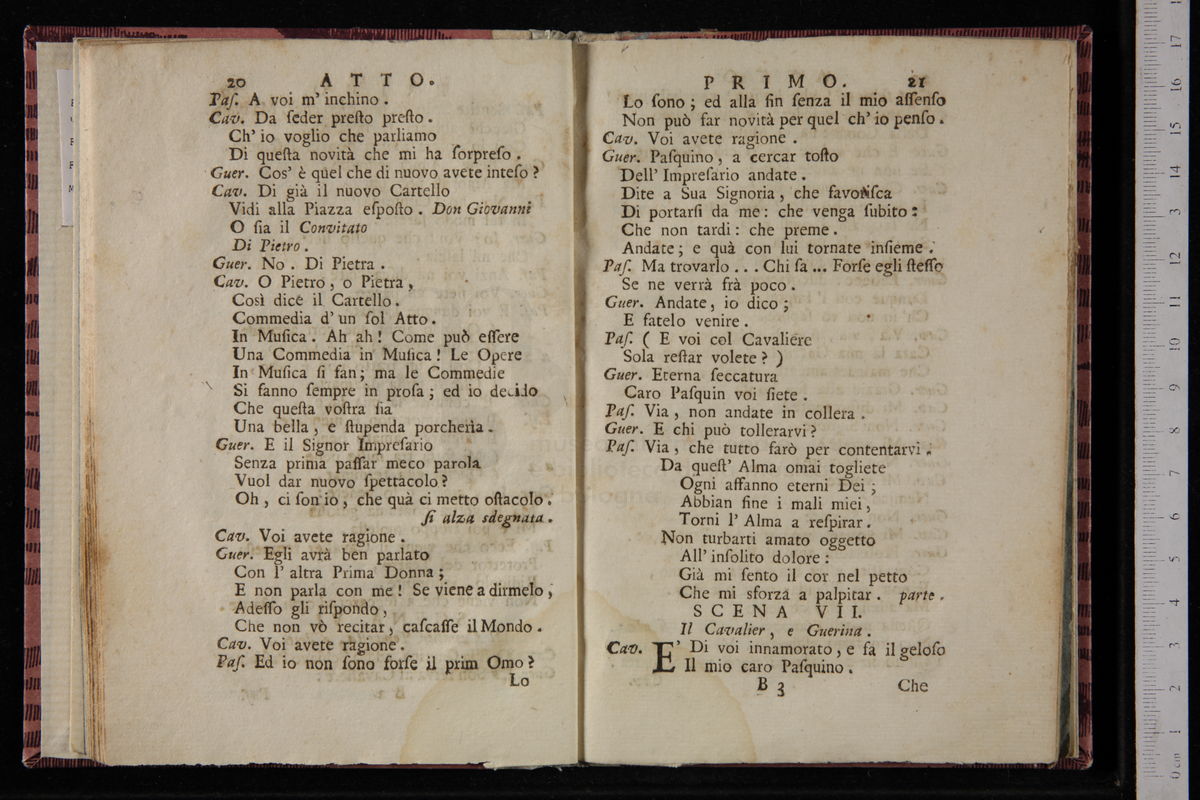 20 A T T O.
Paſ. A voi m' inchino.
Cav. Da ſeder preſto preſto.
Ch' io voglio che parliamo
Di queſta novità che mi ha ſorpreſo.
Guer. Cos' è quel che di nuovo avete inteſo?
Cav. Di già il nuovo Cartello
Vidi alla Piazza eſpoſto. Don Giovanni
O ſia il Convitato
Di Pietro.
Guer. No. Di Pietra.
Cav. O Pietro, o Pietra,
Così dice il Cartello.
Commedia d' un ſol Atto.
In Muſica. Ah ah! Come può eſſere
Una Commedia in Muſica! Le Opere
In Muſica ſi fan; ma le Commedie
Si fanno ſempre in proſa; ed io decido
Che queſta voſtra ſia
Una bella, e ſtupenda porcheria.
Guer. E il Signor Impreſario
Senza prima paſſar meco parola
Vuol dar nuovo ſpettacolo?
Oh, ci ſon io, che quà ci metto oſtacolo.
ſi alza sdegnata.
Cav. Voi avete ragione.
Guer. Egli avrà ben parlato
Con l' altra Prima Donna;
E non parla con me! Se viene a dirmelo,
Adeſſo gli riſpondo,
Che non vò recitar, caſcaſſe il Mondo.
Cav. Voi avete ragione.
Paſ. Ed io non ſono forſe il prim Omo?
Lo
P R I M O. 21
Lo ſono; ed alla fin ſenza il mio aſſenſo
Non può far novità per quel ch' io penſo.
Cav. Voi avete ragione.
Guer. Paſquino, a cercar toſto
Dell' Impreſario andate.
Dite a Sua Signoria, che favoriſca
Di portarſi da me: che venga ſubito:
Che non tardi: che preme.
Andate; e quà con lui tornate inſieme.
Paſ. Ma trovarlo... Chi ſa... Forſe egli ſteſſo
Se ne verrà frà poco.
Guer. Andate, io dico;
E fatelo venire.
Paſ. ( E voi col Cavaliere
Sola reſtar volete? )
Guer. Eterna ſeccatura
Caro Paſquin voi ſiete.
Paſ. Via, non andate in collera.
Guer. E chi può tollerarvi?
Paſ. Via, che tutto farò per contentarvi.
Da queſt' Alma omai togliete
Ogni affanno eterni Dei;
Abbian fine i mali miei,
Torni l' Alma a reſpirar.
Non turbarti amato oggetto
All' inſolito dolore:
Già mi ſento il cor nel petto
Che mi sforza a palpitar. parte.
S C E N A V I I.
Il Cavalier, e Guerina.
Cav. E' Di voi innamorato, e fa il geloſo
Il mio caro Paſquino.
B 3 Che